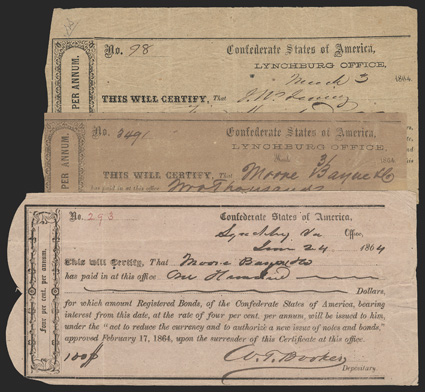 No. 98 Confederate States of America,
LYNCHBURG OFFICE,
March 3 1864.
PER ANNUM.
THIS WILL CERTIFY, That
No. 3491 Confederate States of America,
LYNCHBURG OFFICE,
1864
PER ANNUM.
THIS WILL CERTIFY, That Moore Bayne & Co
has paid in at this office Two Thousand
No. 293 Confederate States of America.
Lynchbg Va Office,
1864
Four per cent. per annum.
This Will Certify, That Moore Bayne & Co
has paid in at this office One Hundred
Dollars,
for which amount Registered Bonds, of the Confederate States of America, bearing
interest from this date, at the rate of four per cent. per annum, will be issued to him,
under the "act to reduce the currency and to authorize a new issue of notes and bonds,"
approved February 17, 1864, upon the surrender of this Certificate at this office.
100$ W. T. Booker
Depositary.